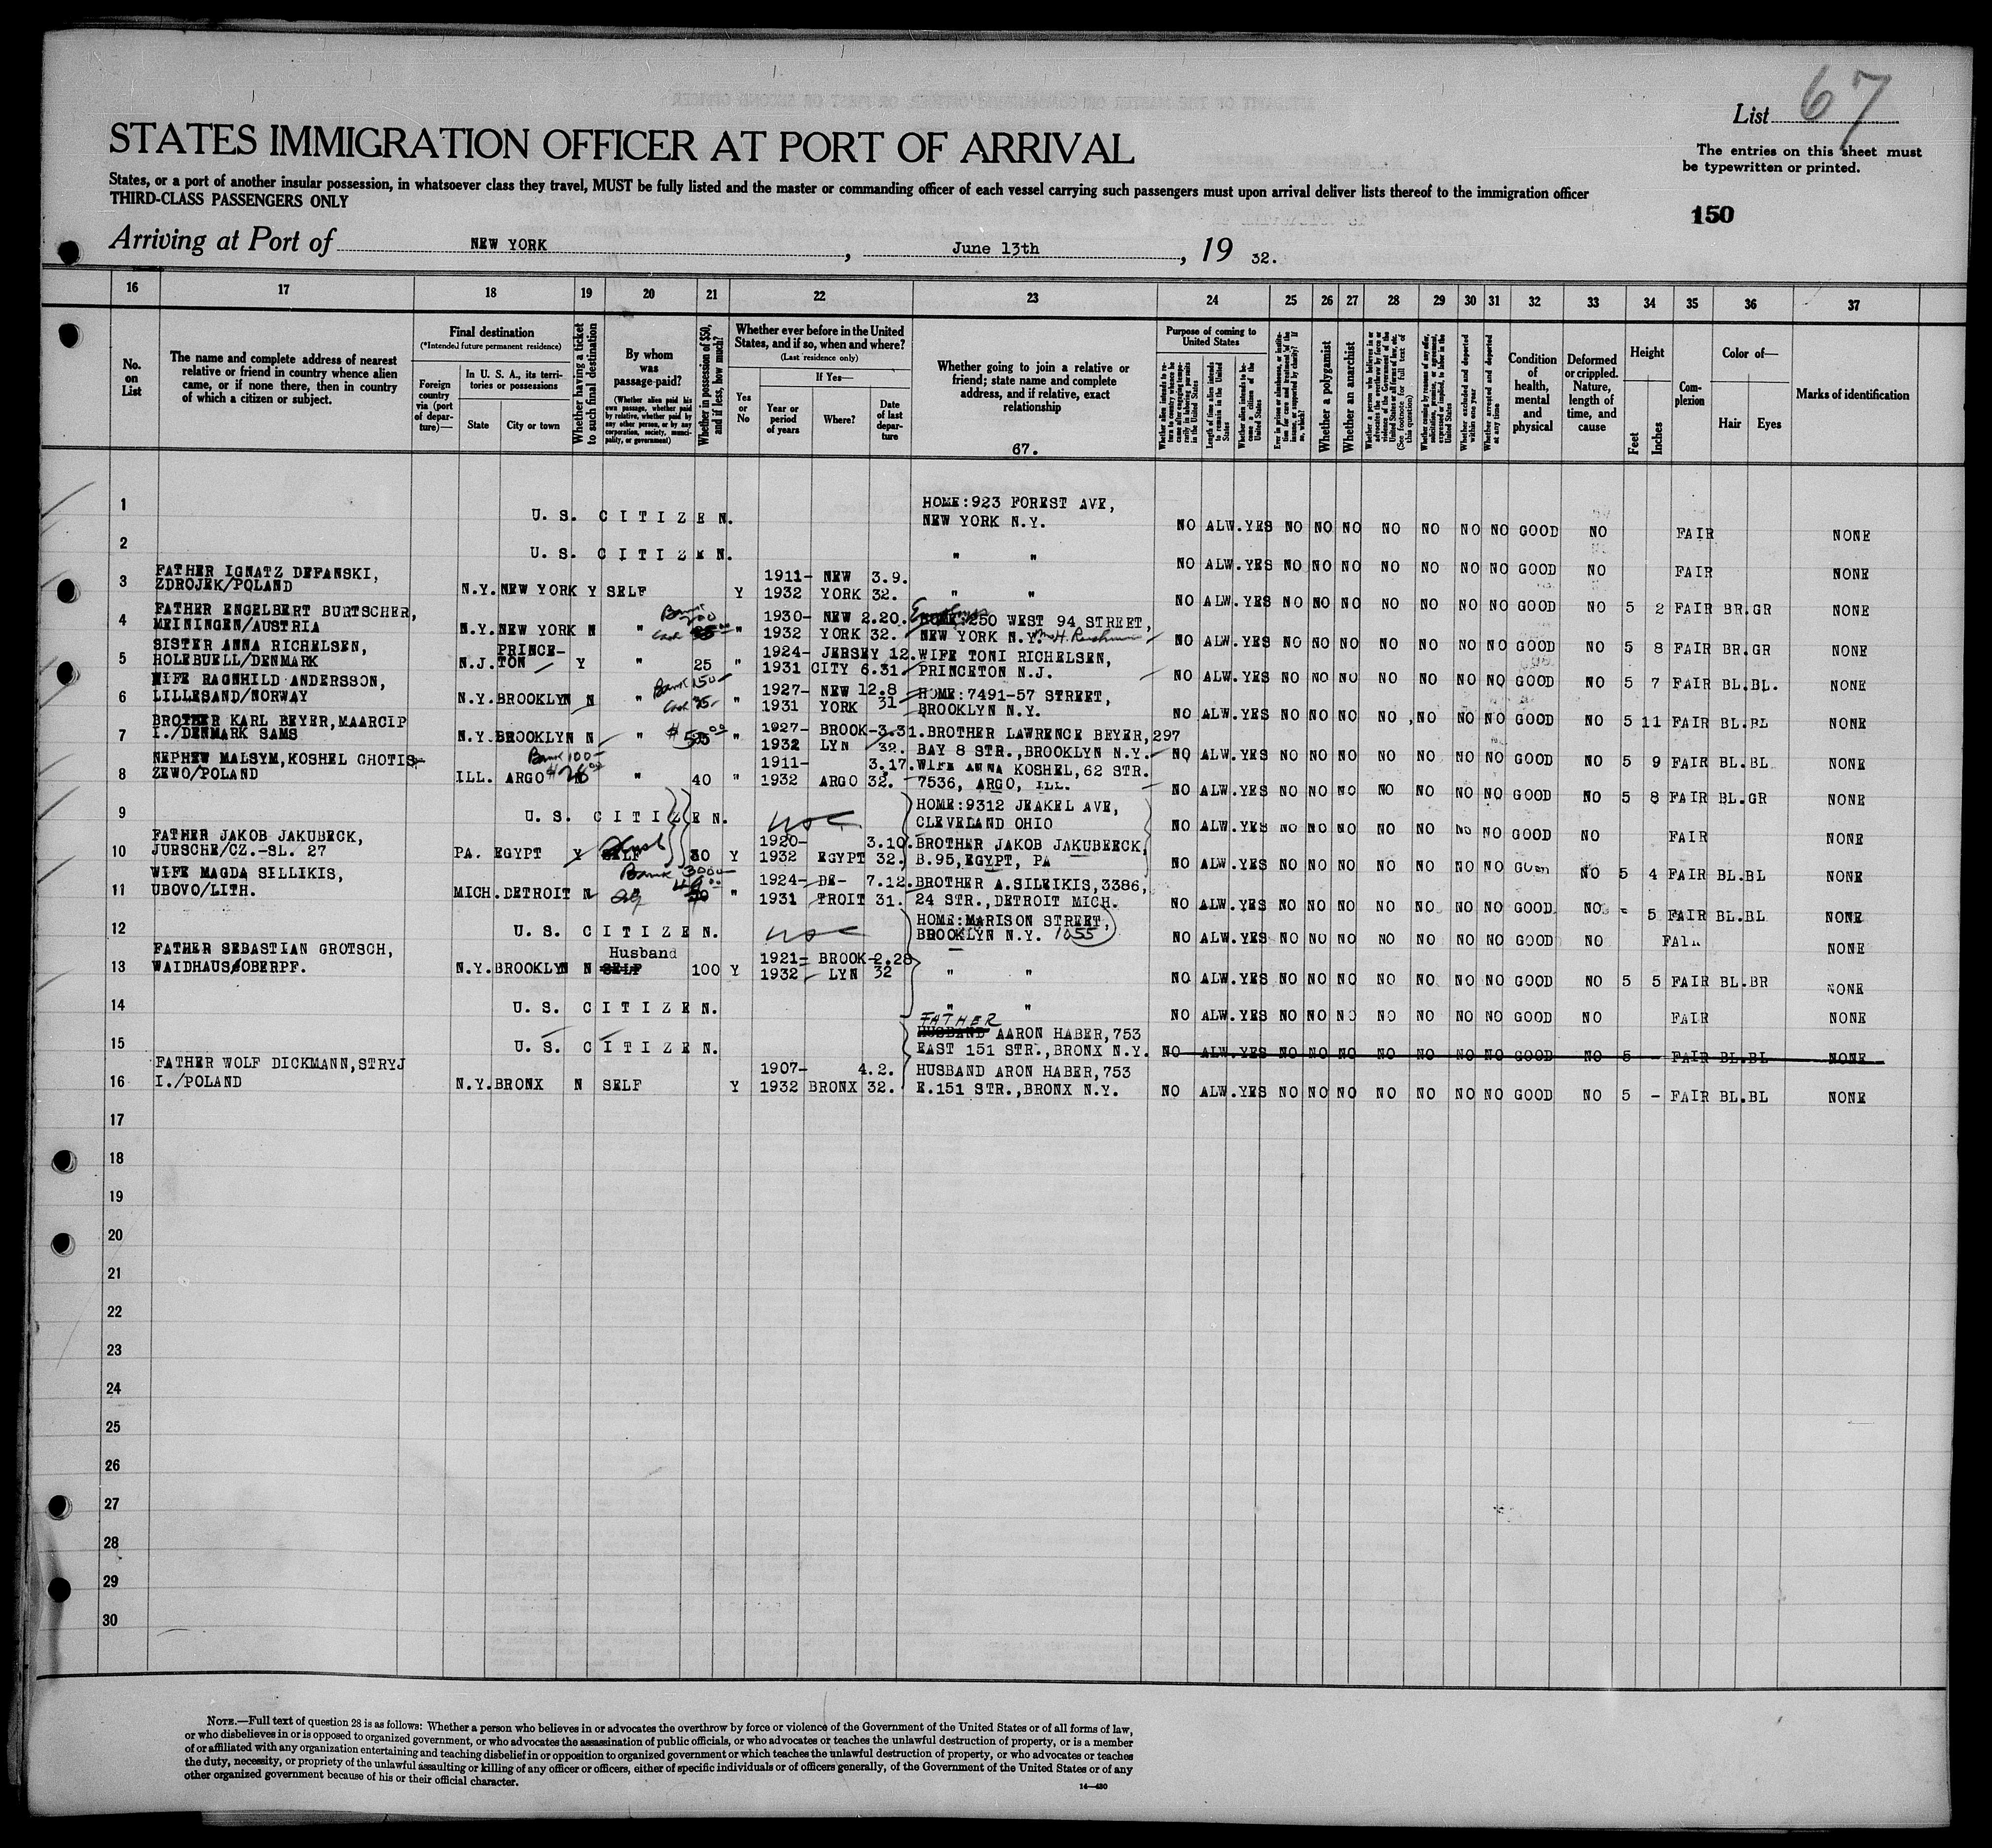 List 67
STATES IMMIGRATION OFFICER AT PORT OF ARRIVAL
The entries on this sheet must
be typewritten or printed.
States, or a port of another insular possession, in whatsoever class they travel, MUST be fully listed and the master or commanding officer of each vessel carrying such passengers must upon arrival deliver lists thereof to the immigration officer
THIRD-CLASS PASSENGERS ONLY
150
Arriving at Port of NEW YORK, June 13th, 19 32.
16 17 18 19 20 21 22 23 24 25 26 27 28 29 30 31 32 33 34 35 36 37
No. on List
The name and complete address of nearest
relative or friend in country whence alien
came, or if none there, then in country
of which a citizen or subject.
Final destination
(*Intended future permanent residence)
Foreign country via (port of departure)—
In U. S. A., its territories or possessions
State
City or town
Whether having a ticket to such final destination
By whom was passage paid?
(Whether alien paid his own passage, whether paid by relative, whether paid by any other person, or by any corporation, society, municipality, or government)
Whether in possession of $50, and if less, how much?
Whether ever before in the United
States, and if so, when and where?
(Last residence only)
Yes or No
If Yes—
Year or period of years
Where?
Date of last departure
Whether going to join a relative or
friend; state name and complete
address, and if relative, exact
relationship
67.
Purpose of coming to United States
Whether alien intends to return to country whence he came after engaging temporarily in laboring pursuits in the United States
Length of time alien intends to remain in the United States
Whether alien intends to become a citizen of the United States
Ever in prison or almshouse, or institution for care and treatment of the insane, or supported by charity? If so, which?
Whether a polygamist
Whether an anarchist
Whether a person who believes in or advocates the overthrow by force or violence of the Government of the United States or all forms of law, etc. (See footnote for full text of this question)
Whether coming by reason of any offer, solicitation, promise, or agreement, expressed or implied, to labor in the United States
Whether excluded and deported within one year
Whether arrested and deported at any time
Condition of health, mental and physical
Deformed or crippled. Nature, length of time, and cause
Height
Feet
Inches
Complexion
Color of—
Hair
Eyes
Marks of identification
1 U. S. CITIZEN. HOME:923 FOREST AVE,
NEW YORK N.Y. NO ALW.YES NO NO NO NO NO NO NO GOOD NO FAIR NONE
2 U. S. CITIZEN. " " NO ALW.YES NO NO NO NO NO NO NO GOOD NO FAIR NONE
FATHER IGNATZ DEFANSKI, 1911- NEW 3.9.
3 ZDROJEK/POLAND N.Y. NEW YORK Y SELF Y 1932 YORK 32. " " NO ALW.YES NO NO NO NO NO NO NO GOOD NO 5 2 FAIR BR.GR NONE
FATHER ENGELBERT BURTSCHER, Bank 200 1930- NEW 2.20. HOME:250 WEST 94 STREET,
4 MEININGEN/AUSTRIA N.Y. NEW YORK N " Cash " 1932 YORK 32. NEW YORK N.Y. NO ALW.YES NO NO NO NO NO NO NO GOOD NO 5 8 FAIR BR.GR NONE
SISTER ANNA RICHELSEN, PRINCE- 1924- JERSEY 12. WIFE TONI RICHELSEN,
5 HOLEBUELL/DENMARK N.J. TON Y " 25 " 1931 CITY 6.31 PRINCETON N.J. NO ALW.YES NO NO NO NO NO NO NO GOOD NO 5 7 FAIR BL.BL. NONE
WIFE RAGNHILD ANDERSSON, Bank 150- 1927- NEW 12.8 HOME:7491-57 STREET,
6 LILLESAND/NORWAY N.Y. BROOKLYN N " Cash " 1931 YORK 31 BROOKLYN N.Y. NO ALW.YES NO NO NO NO NO NO NO GOOD NO 5 11 FAIR BL.BL NONE
BROTHER KARL BEYER,MAARCIP 1927- BROOK- 3.31. BROTHER LAWRENCE BEYER,297
7 I./DENMARK SAMS N.Y. BROOKLYN N " " 1932 LYN 32. BAY 8 STR.,BROOKLYN N.Y. NO ALW.YES NO NO NO NO NO NO NO GOOD NO 5 9 FAIR BL.BL NONE
NEPHEW MALSYM,KOSHEL CHOTIS- Bank 100- 1911- 3.17. WIFE ANNA KOSHEL,62 STR.
8 ZEWO/POLAND ILL. ARGO " 40 " 1932 ARGO 32. 7536, ARGO, ILL. NO ALW.YES NO NO NO NO NO NO NO GOOD NO 5 8 FAIR BL.GR NONE
HOME:9312 JEAKEL AVE,
9 U. S. CITIZEN. USC CLEVELAND OHIO NO ALW.YES NO NO NO NO NO NO NO GOOD NO FAIR NONE
FATHER JAKOB JAKUBECK, 1920- 3.10. BROTHER JAKOB JAKUBEECK,
10 JURSCHE/CZ.-SL. 27 PA. EGYPT Y SELF 30 Y 1932 EGYPT 32. B.95,EGYPT, PA NO ALW.YES NO NO NO NO NO NO NO GOOD NO 5 4 FAIR BL.BL NONE
WIFE MAGDA SILLIKIS, Bank 3000- 1924- DE- 7.12. BROTHER A.SILEIKIS,3386,
11 UBOVO/LITH. MICH. DETROIT N " 1931 TROIT 31. 24 STR.,DETROIT MICH. NO ALW.YES NO NO NO NO NO NO NO GOOD NO 5 FAIR BL.BL NONE
HOME:MARISON STREET,
12 U. S. CITIZEN. USC BROOKLYN N.Y. 1055 NO ALW.YES NO NO NO NO NO NO NO GOOD NO FAIR NONE
FATHER SEBASTIAN GROTSCH, Husband 1921- BROOK- 2.28
13 WAIDHAUS/OBERPF. N.Y. BROOKLYN N SELF 100 Y 1932 LYN 32 " " NO ALW.YES NO NO NO NO NO NO NO GOOD NO 5 5 FAIR BL.BR NONE
14 U. S. CITIZEN. " " NO ALW.YES NO NO NO NO NO NO NO GOOD NO FAIR NONE
FATHER
HUSBAND AARON HABER,753
15 U. S. CITIZEN. EAST 151 STR.,BRONX N.Y. NO ALW.YES NO NO NO NO NO NO NO GOOD NO 5 - FAIR BL.BL NONE
FATHER WOLF DICKMANN,STRYJ 1907- 4.2. HUSBAND ARON HABER,753
16 I./POLAND N.Y. BRONX N SELF Y 1932 BRONX 32. E.151 STR.,BRONX N.Y. NO ALW.YES NO NO NO NO NO NO NO GOOD NO 5 - FAIR BL.BL NONE
17
18
19
20
21
22
23
24
25
26
27
28
29
30
NOTE.—Full text of question 28 is as follows: Whether a person who believes in or advocates the overthrow by force or violence of the Government of the United States or of all forms of law,
or who disbelieves in or is opposed to organized government, or who advocates the assassination of public officials, or who advocates or teaches the unlawful destruction of property, or is a member
of or affiliated with any organization entertaining and teaching disbelief in or opposition to organized government or which teaches the unlawful destruction of property, or who advocates or teaches
the duty, necessity, or propriety of the unlawful assaulting or killing of any officer or officers, either of specific individuals or of officers generally, of the Government of the United States or of any
other organized government because of his or their official character.
14—430